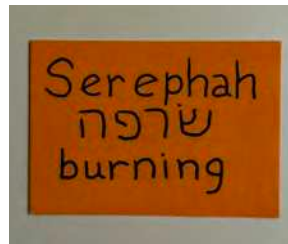 Serephah
שׂרפה
burning